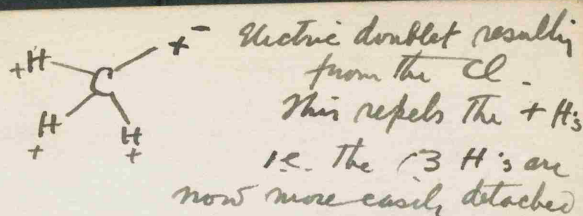 +H C + -
H + H +
Electric doublet resulting
from the Cl.
This repels the + H's
i.e. the 3 H's are
now more easily detached